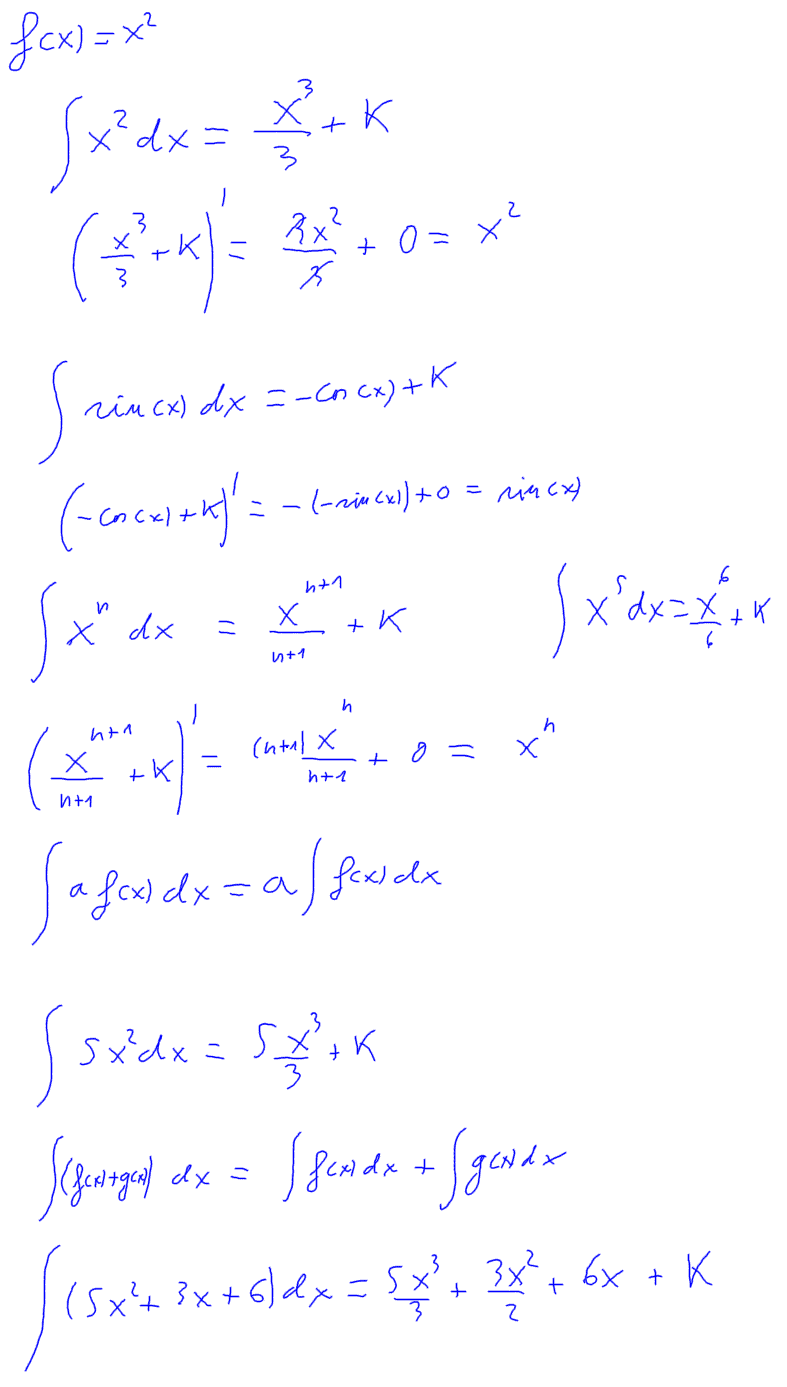 f(x) = x²
∫ x² dx = x³/3 + K
(x³/3 + K)' = 3x²/3 + 0 = x²
∫ sin(x) dx = -cos(x) + K
(-cos(x) + K)' = -(-sin(x)) + 0 = sin(x)
∫ xⁿ dx = xⁿ⁺¹/n+1 + K ∫ x⁵ dx = x⁶/6 + K
(xⁿ⁺¹/n+1 + K)' = (n+1) xⁿ/n+1 + 0 = xⁿ
∫ a f(x) dx = a ∫ f(x) dx
∫ 5x² dx = 5 x³/3 + K
∫ (f(x)+g(x)) dx = ∫ f(x) dx + ∫ g(x) dx
∫ (5x² + 3x + 6) dx = 5x³/3 + 3x²/2 + 6x + K